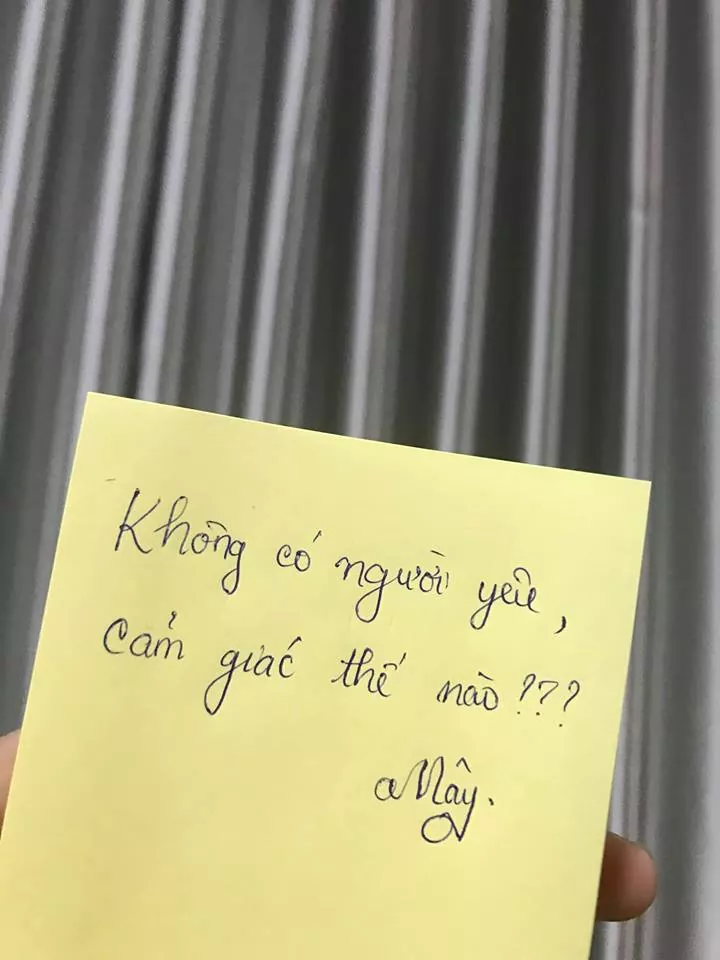 Không có người yêu,
cảm giác thế nào???
Mây.